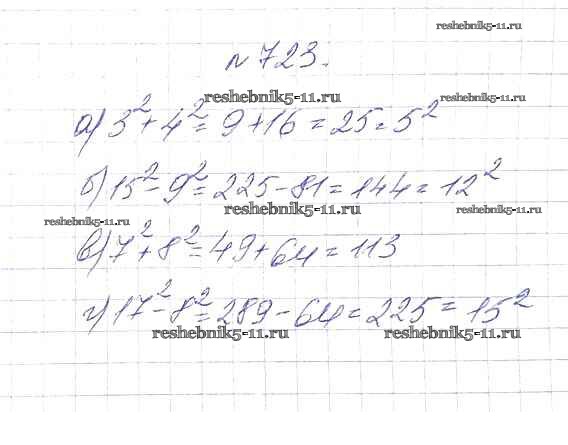 reshebnik5-11.ru
№ 723.
reshebnik5-11.ru reshebnik5-11.ru
а) 3² + 4² = 9 + 16 = 25 = 5²
б) 15² - 9² = 225 - 81 = 144 = 12²
reshebnik5-11.ru reshebnik5-11.ru reshebnik5-11.ru
в) 7² + 8² = 49 + 64 = 113
г) 17² - 8² = 289 - 64 = 225 = 15²
reshebnik5-11.ru reshebnik5-11.ru